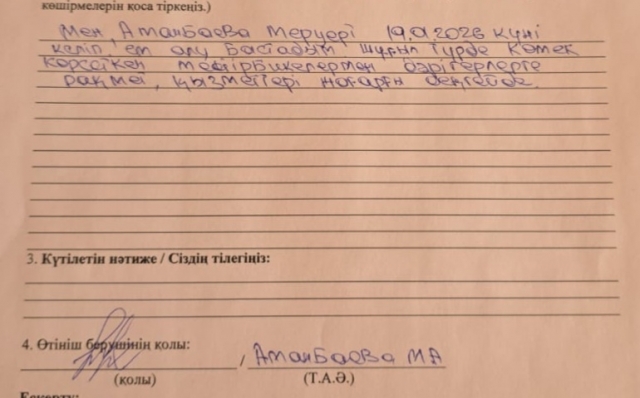 көшірмелерін қоса тіркеңіз.)
Мен, Атанбаева Меруерт 19.01.2026 күні
келіп, ем алу бастадым шұғыл түрде көмек
көрсеткен мейірбикелермен дәрігерлерге
рақмет, қызметтері жоғарғы деңгейде.
3. Күтілетін нәтиже / Сіздің тілегіңіз:
4. Өтініш берушінің қолы:
/ Атанбаева МА
(қолы) (Т.А.Ә.)